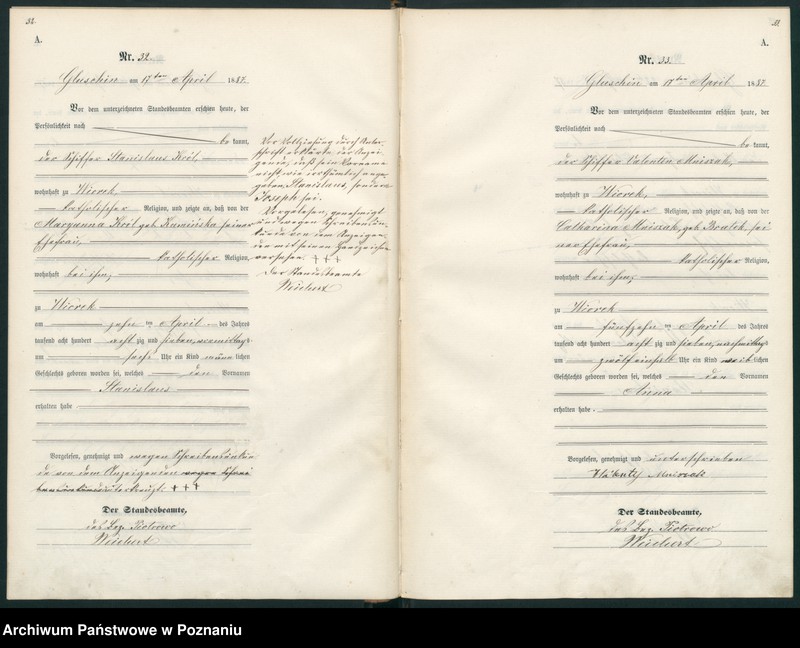 32.
A.
Nr. 32.
Gluschin am 17ten April 1887.
Vor dem unterzeichneten Standesbeamten erschien heute, der
Persönlichkeit nach
be kannt,
der Schiffer Stanislaus Król,
wohnhaft zu Wiorek
katholischer Religion, und zeigte an, daß von der
Maryanna Król geb. Kamińska seiner
Ehefrau,
katholischer Religion,
wohnhaft bei ihm,
zu Wiorek
am zehn ten April des Jahres
tausend acht hundert acht zig und sieben, vormittags
um sechs Uhr ein Kind männ lichen
Geschlechts geboren worden sei, welches den Vornamen
Stanislaus
erhalten habe
Vorgelesen, genehmigt und wegen Schreibensunkun
de von dem Anzeigenden wegen Schrei
bensunkunde unterkreuzt. + + +
Der Standesbeamte,
des Bez. Piotrowo
Weichert
Vor Vollziehung durch Unter-
schrift erklärte der Anzei-
gende, daß sein Vorname
nicht wie irrthümlich ange-
geben, Stanislaus, sondern
Joseph sei.
Vorgelesen, genehmigt
und wegen Schreibensun-
kunde von dem Anzeigen-
den mit seinem Handzeichen
versehen. + + +
Der Standesbeamte
Weichert
A.
Nr. 33.
Gluschin am 17ten April 1887
Vor dem unterzeichneten Standesbeamten erschien heute, der
Persönlichkeit nach
be kannt,
der Schiffer Valentin
wohnhaft zu Wiorek,
katholischer Religion, und zeigte an, daß von der
Catharina geb. Bratek sei
ner Ehefrau,
katholischer Religion,
wohnhaft bei ihm,
zu Wiorek
am fünfzehn ten April des Jahres
tausend acht hundert acht zig und sieben, nachmittags
um zwölf einhalb Uhr ein Kind weib lichen
Geschlechts geboren worden sei, welches den Vornamen
Anna
erhalten habe.
Vorgelesen, genehmigt und unterschrieben
Der Standesbeamte,
des Bez. Piotrowo
Weichert
Archiwum Państwowe w Poznaniu